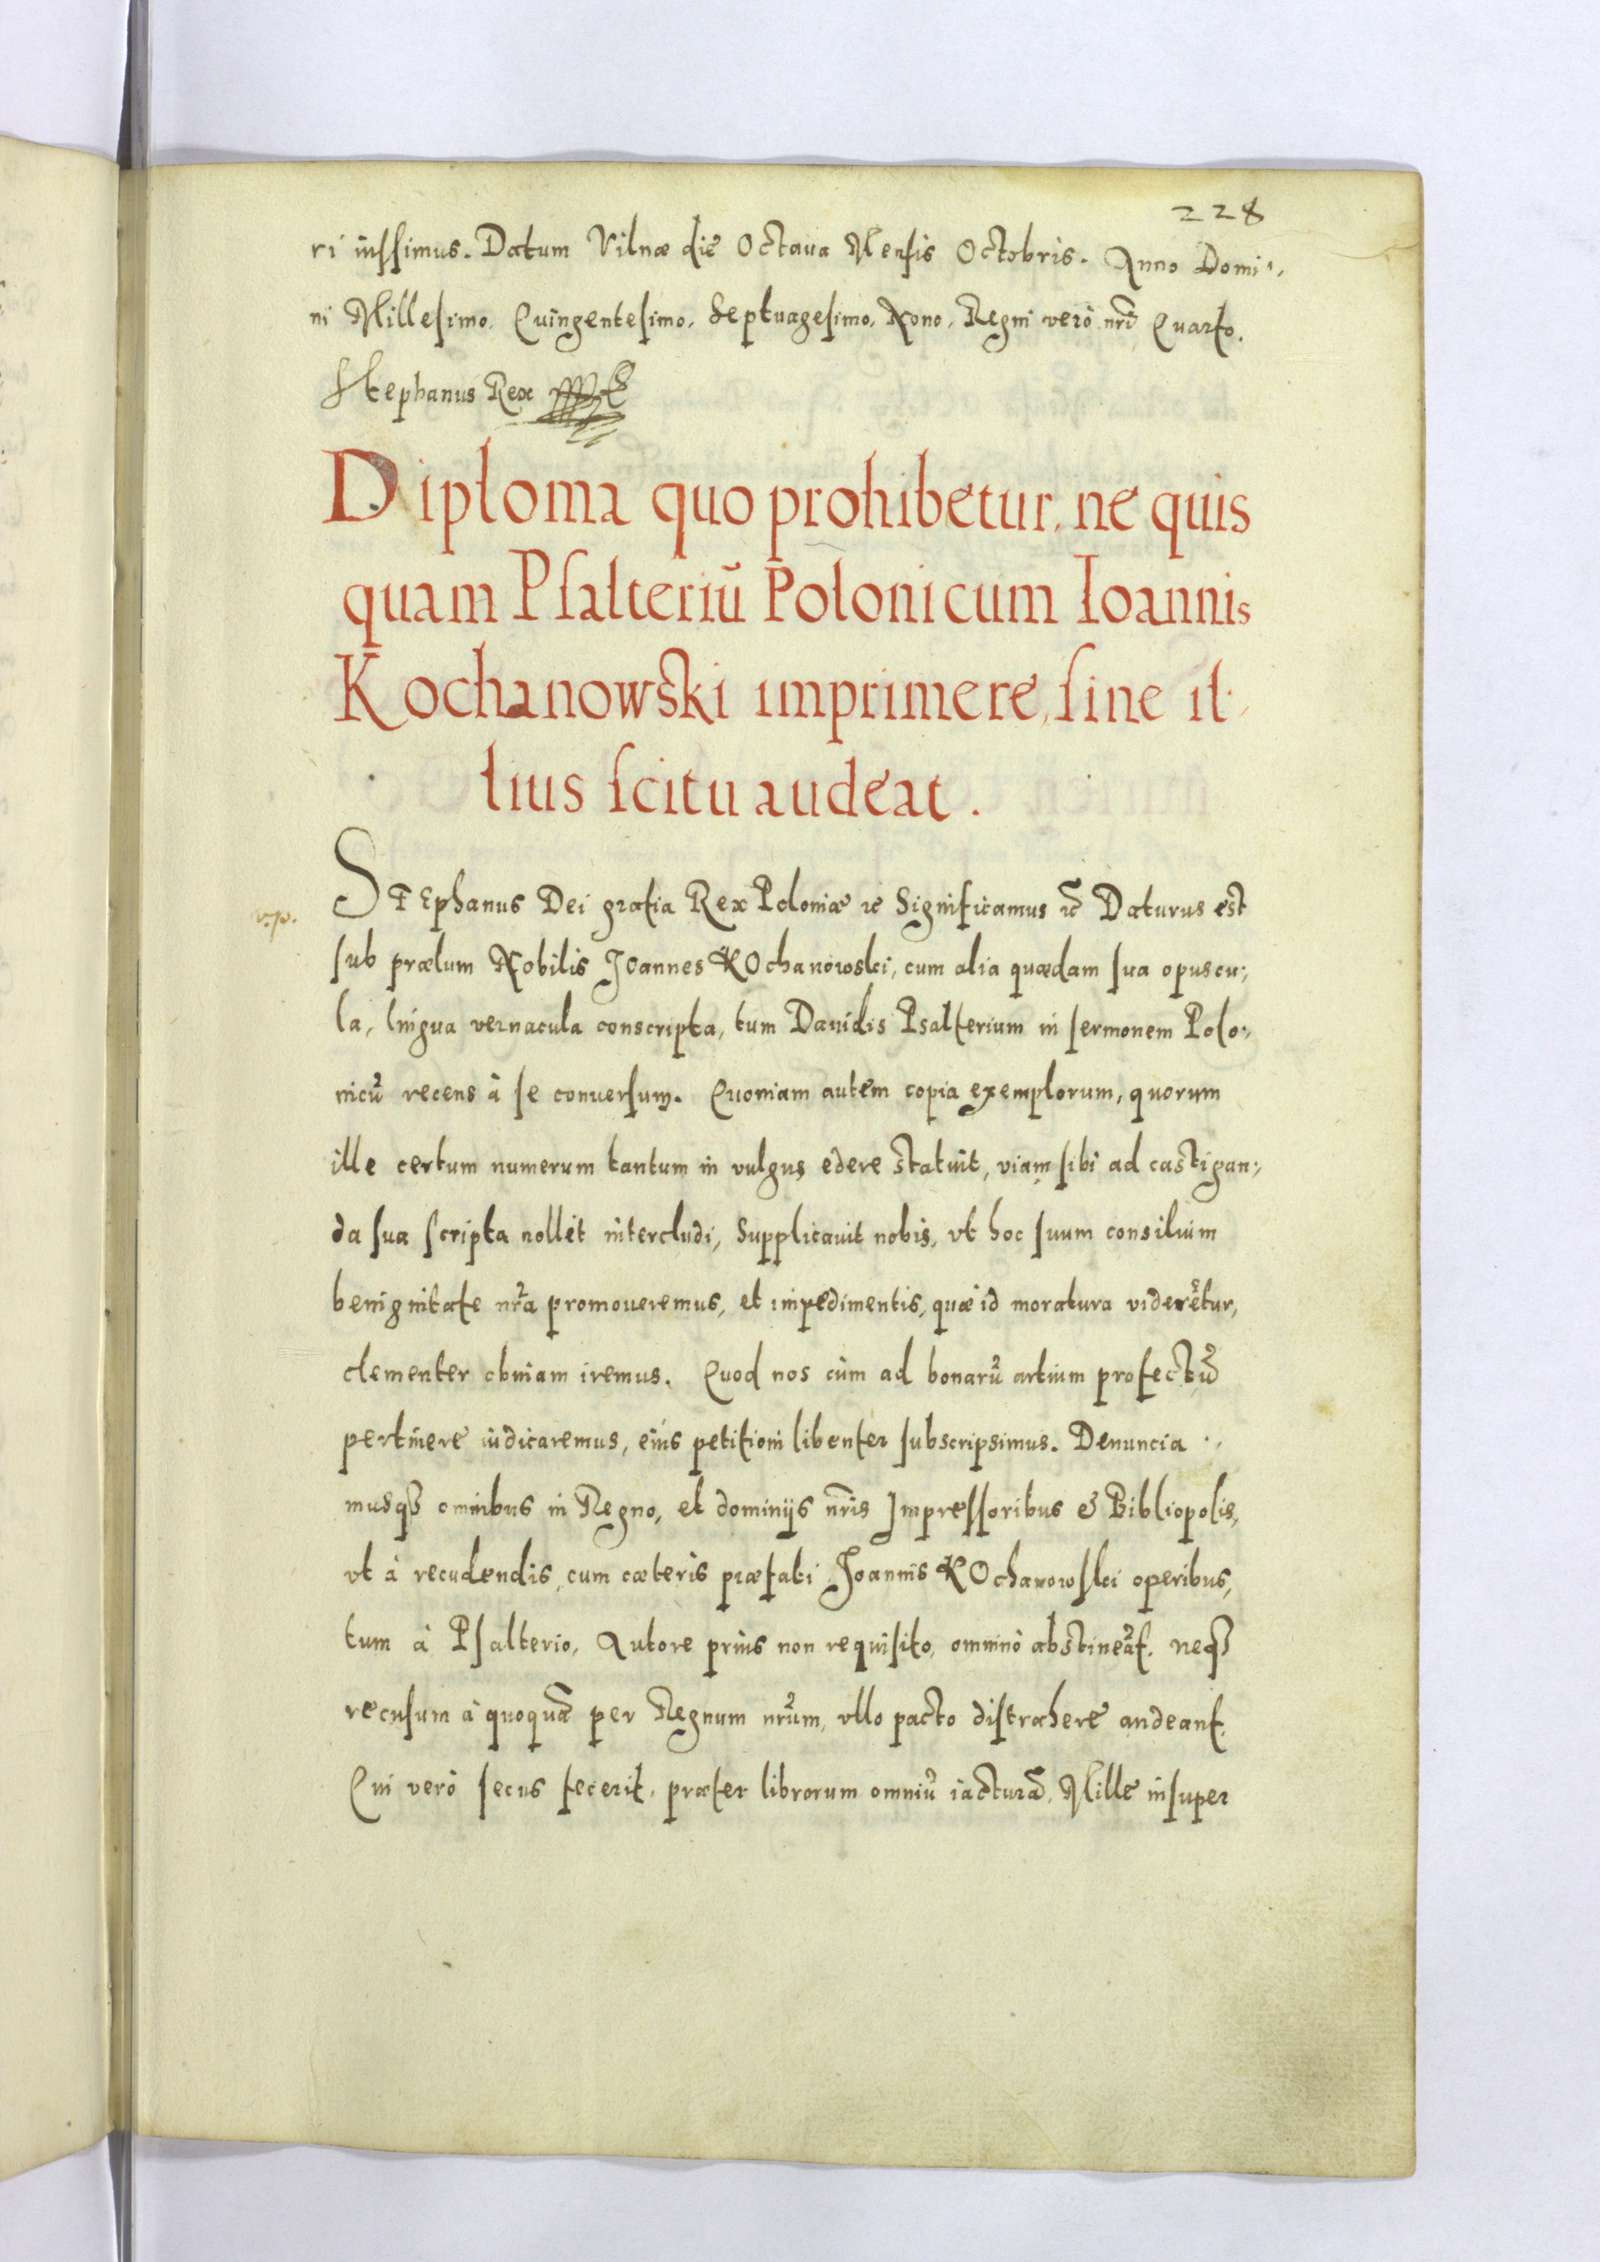 228
ri iussimus. Datum Vilnæ die Octaua Mensis Octobris. Anno Domi:,
ni Millesimo, Quingentesimo, Septuagesimo, Nono, Regni verò nrĩ Quarto.
Stephanus Rex
Diploma quo prohibetur, ne quis
quam Psalteriũ Polonicum Ioannis
Kochanowski imprimere, sine il,
lius scitu audeat.
STEphanus Dei gratia Rex Poloniæ ꝛc Significamus ꝛc̃ Daturus est
sub prælum Nobilis Joannes KOchanowski, cum alia quædam sua opuscu:,
la, lingua vernacula conscripta, tum Dauidis Psalterium in sermonem Polo:,
nicũ recens à se conuersum. Quoniam autem copia exemplorum, quorum
ille certum numerum tantum in vulgus edere statuit, viam sibi ad castigan:,
da sua scripta nollet intercludi, Supplicauit nobis, vt hoc suum consilium
benignitate nr̃a promoueremus, et impedimentis, quæ id moratura viderẽtur,
clementer obuiam iremus. Quod nos cùm ad bonarũ artium profectũ
pertinere iudicaremus, eius petitioni libenter subscripsimus. Denuncia:,
musqꝫ omnibus in Regno, et dominijs nr̃is Impressoribus & Bibliopolis,
vt à recudendis, cum cæteris præfati Joannis KOchanowski operibus,
tum à Psalterio, Autore prius non requisito, omninò abstineãt. neqꝫ
recusum à quoquã per Regnum nr̃um, vllo pacto distrahere audeant.
Qui verò secus fecerit, præter librorum omniũ iacturã, Mille insuper